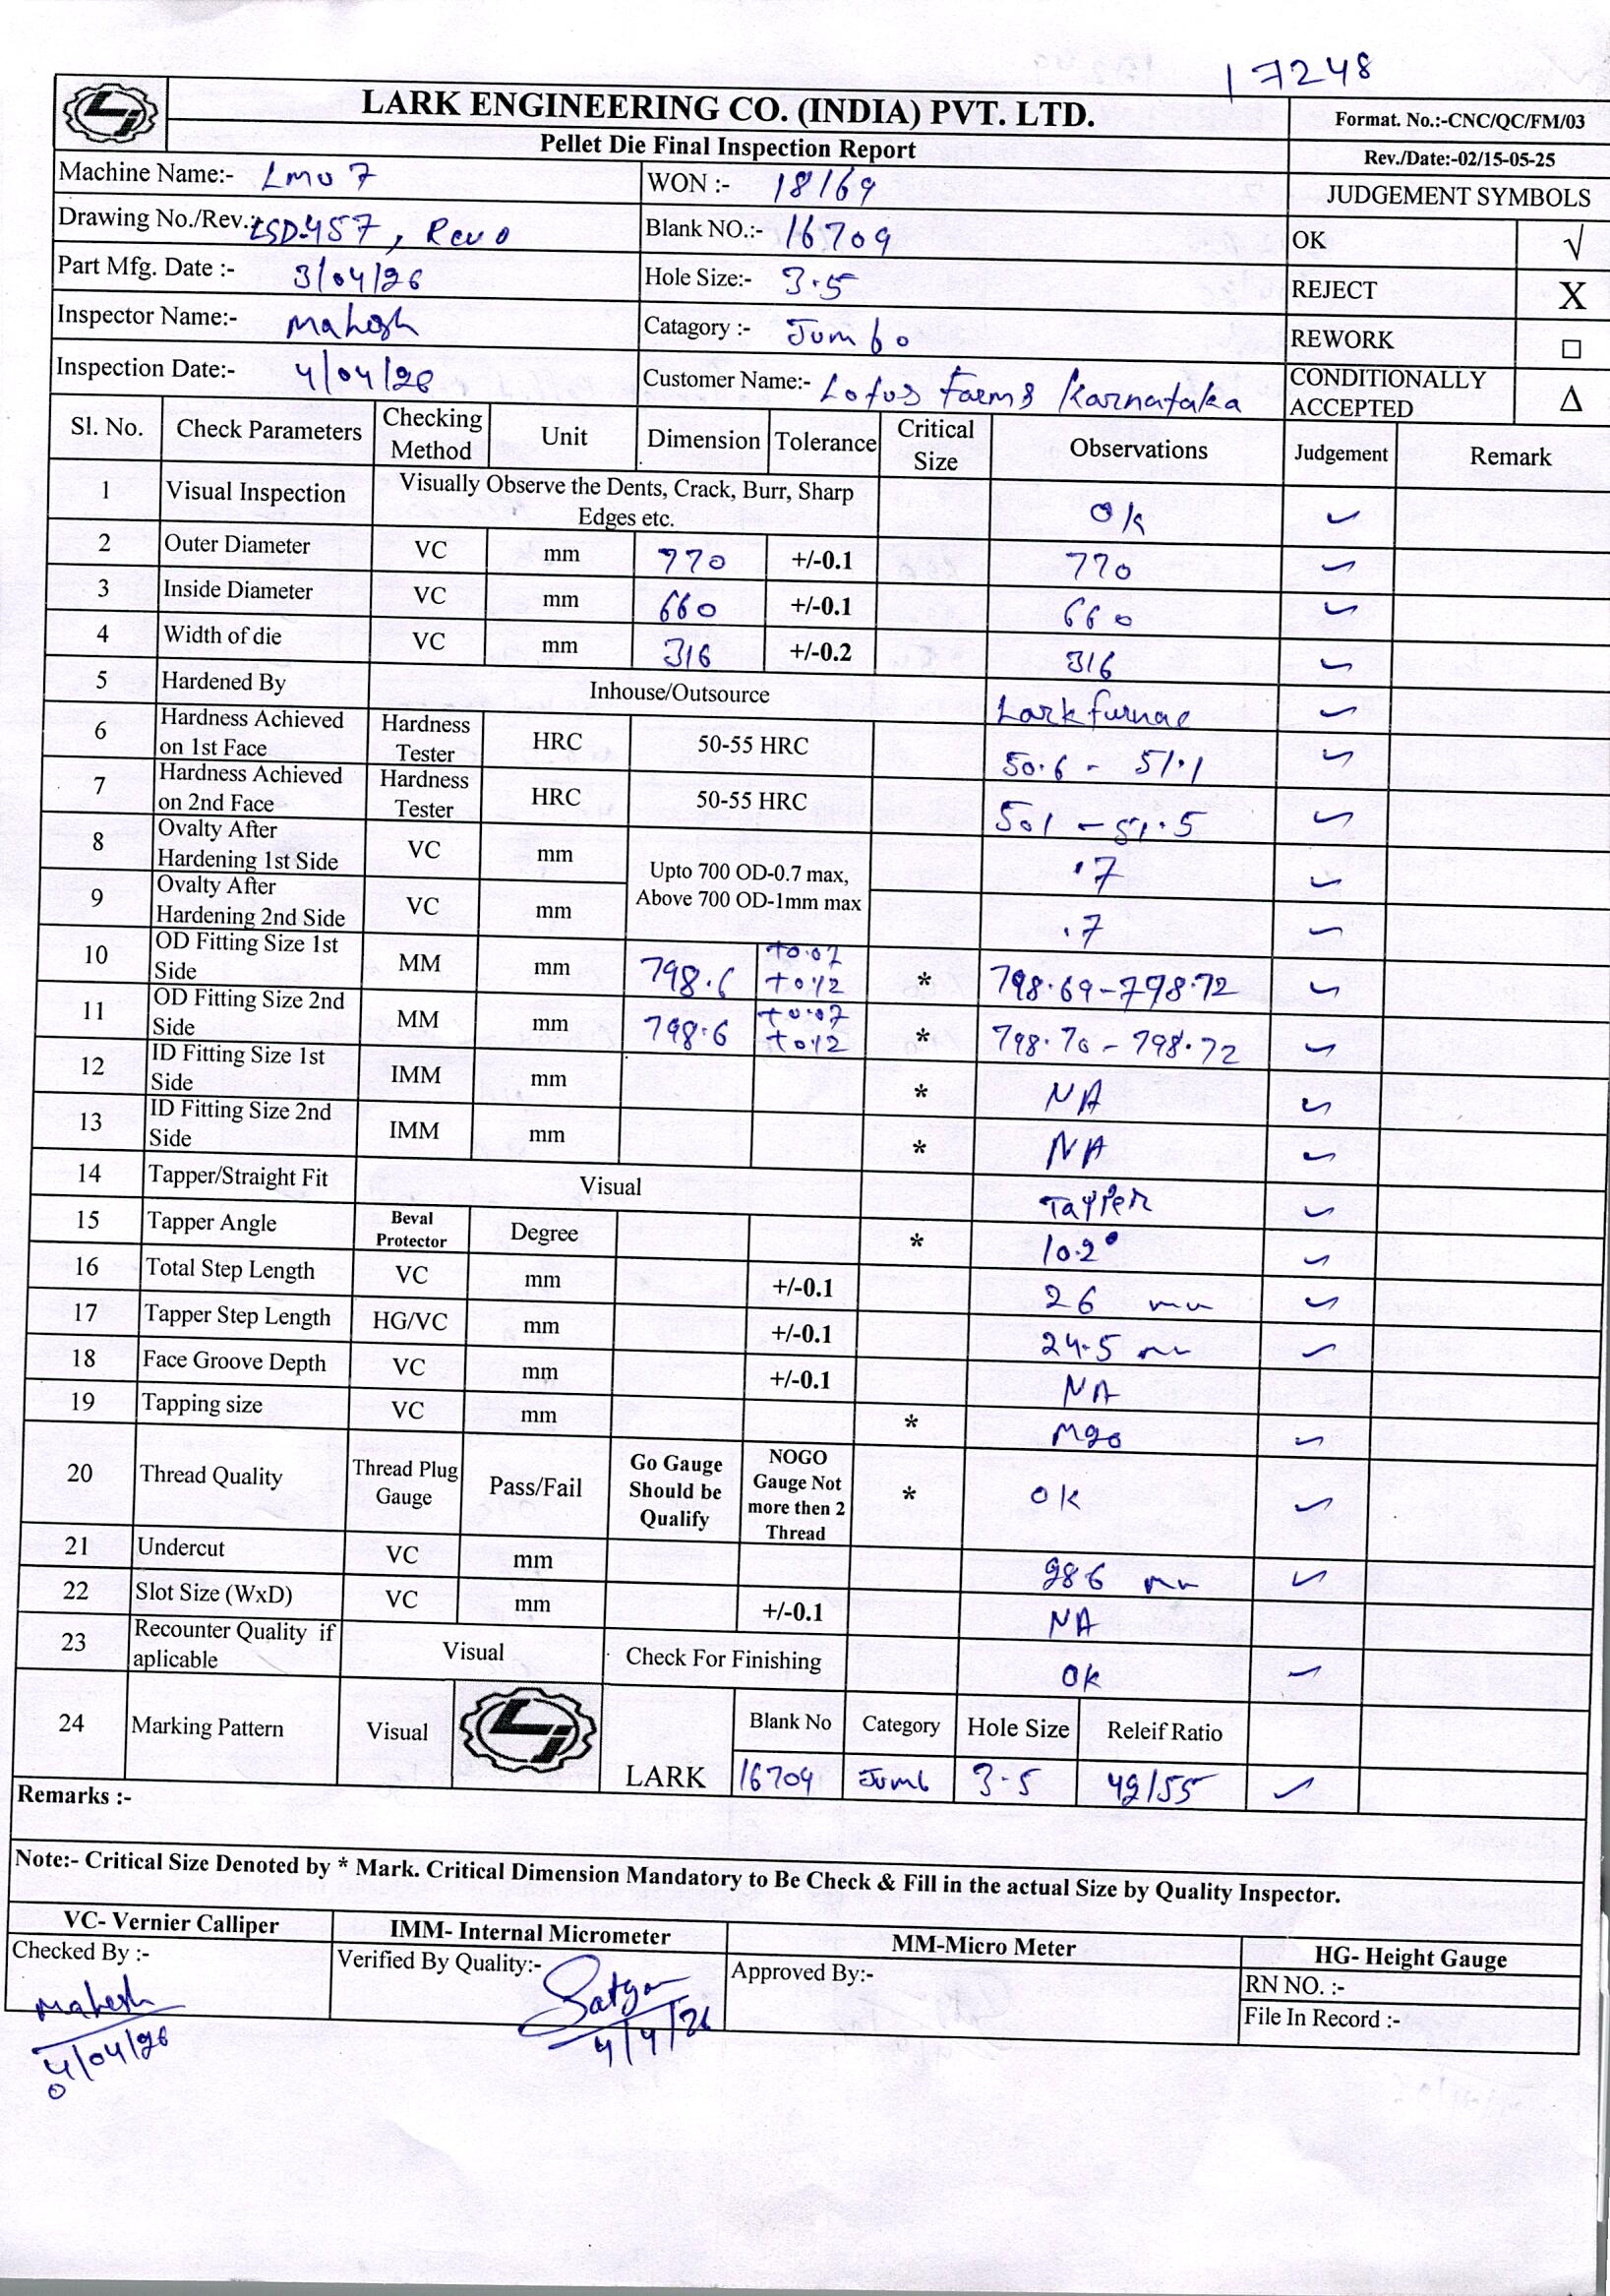 17248
LARK ENGINEERING CO. (INDIA) PVT. LTD.
Format. No.:-CNC/QC/FM/03
Pellet Die Final Inspection Report
Rev./Date:-02/15-05-25
Machine Name:- Lmu 7 WON :- 18169 JUDGEMENT SYMBOLS
Drawing No./Rev.: LSD-457, Rev 0 Blank NO.:- 16709 OK √
Part Mfg. Date :- 3/04/26 Hole Size:- 3.5 REJECT X
Inspector Name:- Mahesh Catagory :- Jumbo REWORK □
Inspection Date:- 4/04/26 Customer Name:- Lotus Farms Karnataka CONDITIONALLY ACCEPTED Δ
Sl. No. Check Parameters Checking Method Unit Dimension Tolerance Critical Size Observations Judgement Remark
1 Visual Inspection Visually Observe the Dents, Crack, Burr, Sharp Edges etc. Ok ✓
2 Outer Diameter VC mm 770 +/-0.1 770 ✓
3 Inside Diameter VC mm 660 +/-0.1 660 ✓
4 Width of die VC mm 316 +/-0.2 316 ✓
5 Hardened By Inhouse/Outsource Lark furnac ✓
6 Hardness Achieved on 1st Face Hardness Tester HRC 50-55 HRC 50.6 - 51.1 ✓
7 Hardness Achieved on 2nd Face Hardness Tester HRC 50-55 HRC 501 - 51.5 ✓
8 Ovalty After Hardening 1st Side VC mm Upto 700 OD-0.7 max, Above 700 OD-1mm max .7 ✓
9 Ovalty After Hardening 2nd Side VC mm .7 ✓
10 OD Fitting Size 1st Side MM mm 798.6 +0.07 +0.12 * 798.69-798.72 ✓
11 OD Fitting Size 2nd Side MM mm 798.6 +0.07 +0.12 * 798.70 - 798.72 ✓
12 ID Fitting Size 1st Side IMM mm * NA ✓
13 ID Fitting Size 2nd Side IMM mm * NA ✓
14 Tapper/Straight Fit Visual Tapper ✓
15 Tapper Angle Beval Protector Degree * 10.2° ✓
16 Total Step Length VC mm +/-0.1 26 mm ✓
17 Tapper Step Length HG/VC mm +/-0.1 24.5 mm ✓
18 Face Groove Depth VC mm +/-0.1 NA
19 Tapping size VC mm * M20 ✓
20 Thread Quality Thread Plug Gauge Pass/Fail Go Gauge Should be Qualify NOGO Gauge Not more then 2 Thread * OK ✓
21 Undercut VC mm mm ✓
22 Slot Size (WxD) VC mm +/-0.1 NA
23 Recounter Quality if aplicable Visual Check For Finishing Ok ✓
24 Marking Pattern Visual LARK Blank No Category Hole Size Releif Ratio
16709 Jumb 3.5 42/55 ✓
Remarks :-
Note:- Critical Size Denoted by * Mark. Critical Dimension Mandatory to Be Check & Fill in the actual Size by Quality Inspector.
VC- Vernier Calliper IMM- Internal Micrometer MM-Micro Meter HG- Height Gauge
Checked By :- Verified By Quality:- Approved By:- RN NO. :-
Mahesh Satyam File In Record :-
4/04/26 4/4/26